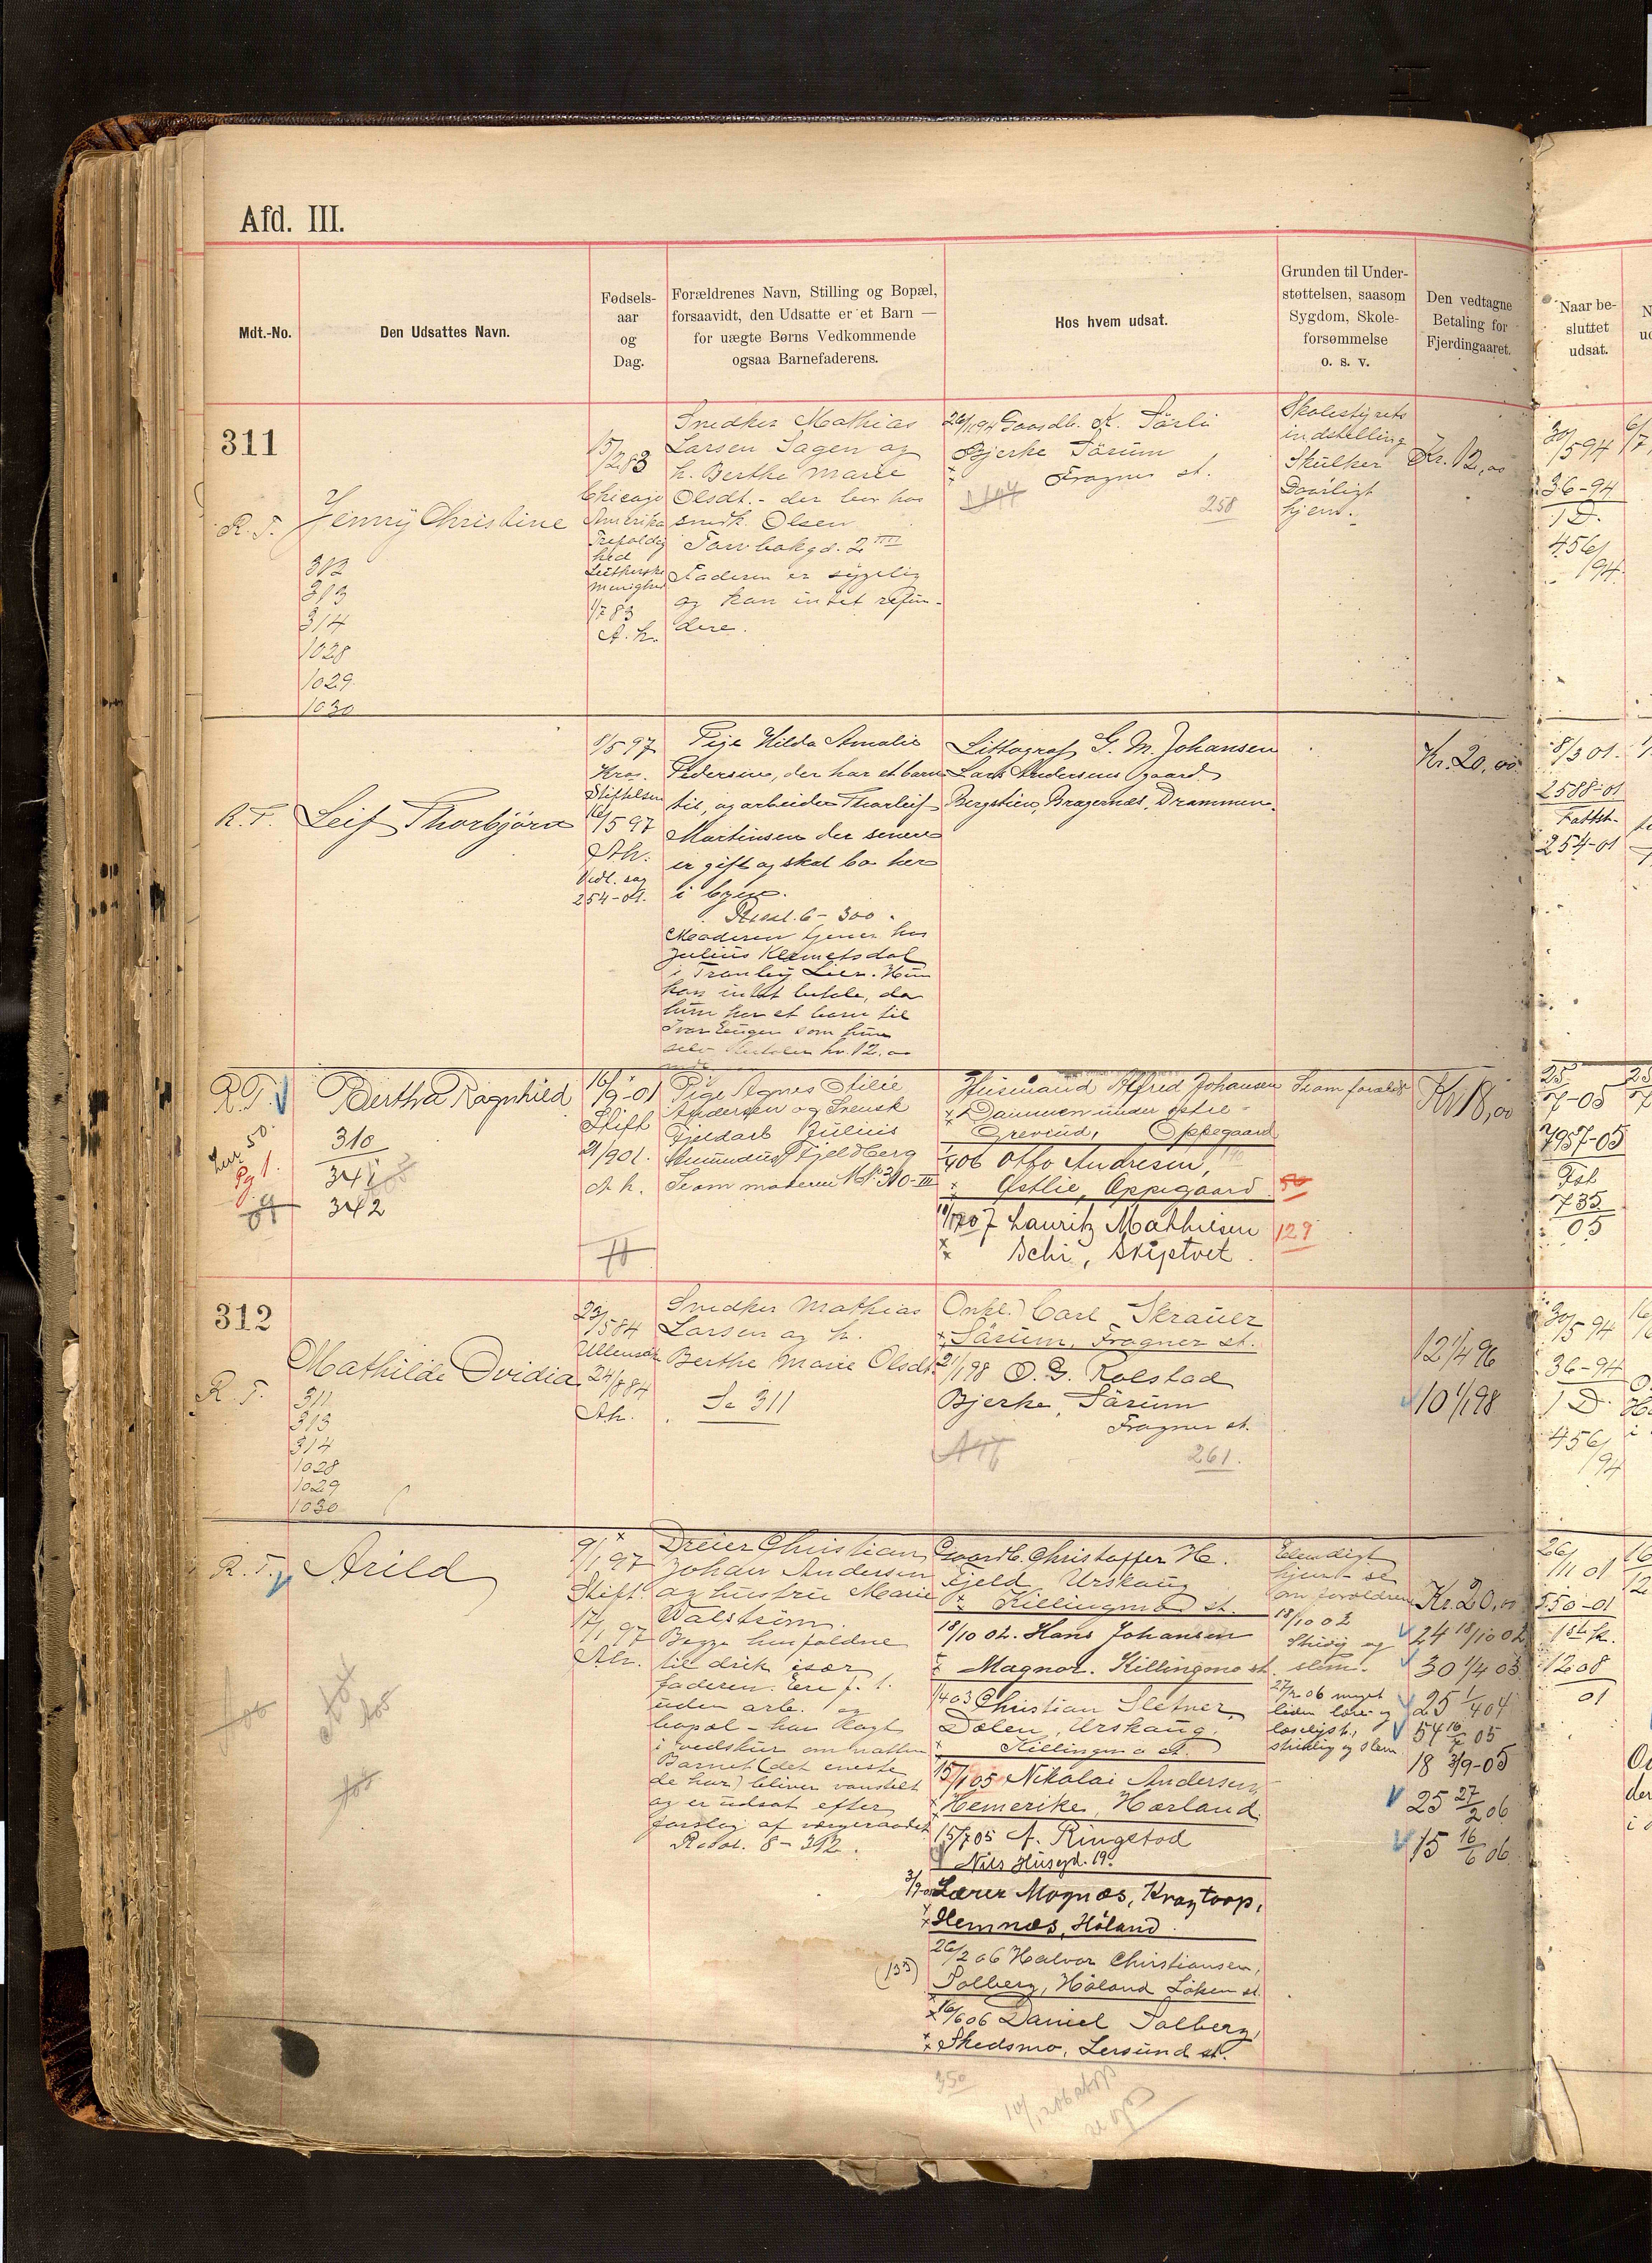 Afd. III.
Mdt.-No.
Den Udsattes Navn.
Fødsels-
aar
og
Dag.
Forældrenes Navn, Stilling og Bopæl,
forsaavidt, den Udsatte er et Barn —
for uægte Børns Vedkommende
ogsaa Barnefaderens.
Hos hvem udsat.
Grunden til Under-
støttelsen, saasom
Sygdom, Skole-
forsømmelse
o. s. v.
Den vedtagne
Betaling for
Fjerdingaaret.
Naar be-
sluttet
udsat.
311
R. T.
Jenny Christine
312
313
314
1028
1029
1030
15/2 83
Chicago
Amerika
Trefoldig
hed
Lutherske
Menighed
1/7 83
A. h.
Snedker Mathias
Larsen Sagen og
h. Berthe Marie
Olsdt. - der bor hos
snedk. Olsen
Torvbakgd. 2 III
Faderen er sygelig
og kan intet refun-
dere.
26/1 94 Gaardb. K. Sörli
Bjerke Sörum
Frogner st.
258
Skolestyrets
indstilling
Skulker
Daarligt
hjem.
Kr. 12,00
30/5 94
36-94
1 D.
456/
94
R. T.
Leif Thorbjörn
8/5 97
Kra.
Stiftelsen
16/5 97
Ah.
Vedl. sag
254-01.
Pige Hilda Amalie
Pedersen, der har et barn
til, og arbeider Thorleif
Martinsen der senere
er gift og skal bo her
i byen.
Resol. 6 - 300.
Moderen tjener hos
Julius Klemetsdal
i Tranby Lier. Hun
kan intet betale, da
hun har et barn til
Ivar Eugen som hun
selv betaler kr. 12.00
Littograf G. M. Johansen
Lars Andersens gaard
Bergstien, Bragernæs, Drammen.
Kr. 20,00
8/3 01.
2588-01
Fattst.
254-01
R. T.
Bertha Ragnhild
310
341
342
50.
Pg 1.
16/9-01
Stift
21/9 01.
A h.
Pige Agnes Otilie
Andersen og Svensk
Fjeldarb Julius
Amundus Fjeldberg
Se om moderen No 310-III
Husmand Alfred Johansen
Dammen under östre
Greverud, Oppegaard
1/4 06 Otto Andresen,
Østlie, Oppegaard
50
Lauritz Mathiesen
Schi, Skiptvet.
129
Kr 18,00
7957-05
Fst
735
05
312
R. T.
Mathilde Ovidia
311
313
314
1028
1029
1030
23/5 84
Ullensak
24/8 84
Ah.
Snedker Mathias
Larsen og h.
Berthe Marie Olsdt.
Se 311
Onkel Carl Skrauer
Sörum, Frogner st.
21/1 98 O. G. Rolstad
Bjerke, Sörum
Frogner st.
261.
12 1/4 96
10 1/1 98
30/5 94
36-94
1 D.
456/
94
R. T.
Arild
9/1 97
Stift.
17/1 97
Ah.
Dreier Christian
Johan Andersen
og hustru Marie
Walström.
Begge henfaldne
til drik især
faderen. Ere f. t.
uden arb. og
bopæl - har lagt
i vedskur om natten
Barnet (det eneste
de har) bliver vanstelt
og er udsat efter
forslag af værgeraadet
Resol. 8 - 312.
Gaardb. Christoffer H.
Fjeld Urskoug
Killingmo st.
18/10 02. Hans Johansen
Magnor. Killingmo st.
1/4 03 Christian Sletner
Dalen, Urskoug.
Killingmo st.
15/1 05 Nikolai Andersen,
Hemerike, Hærland.
15/7 05 A. Ringstad
Nils Husgd. 19.
3/9 05 Lærer Mognæs, Kragtorp,
Hemnæs, Höland.
26/2 06 Halvor Christiansen,
(133)
Solberg, Höland Löken st.
16/6 06 Daniel Solberg,
Skedsmo, Lersund st.
350
Elendigt
hjem se
om forældrene
18/10 02
Skidig og
slem.
27/2 06 meget
Kr. 20,00
24 18/10 02
30 1/4 03
25 1/4 04
54 16/7 05
18 3/9-05
25 27/2 06
15 16/6 06
26/11 01
550-01
1208
01